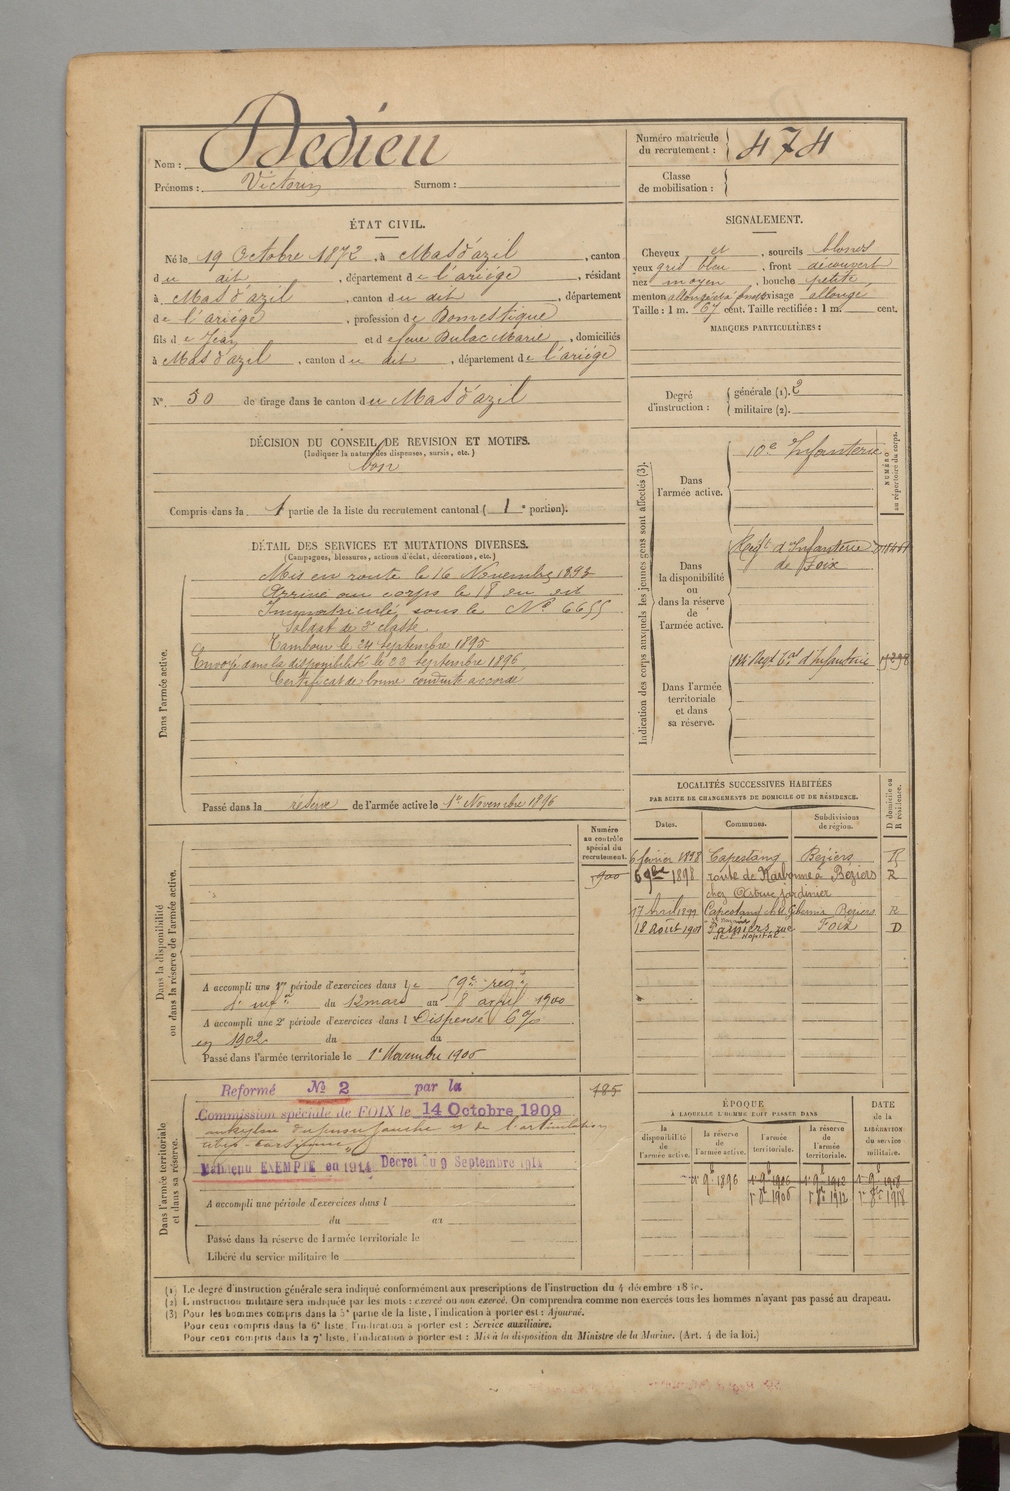 Nom : Dedieu
Prénoms : Victorin Surnom :
Numéro matricule du recrutement : 474
Classe de mobilisation :
ÉTAT CIVIL.
Né le 19 Octobre 1872, à Mas d'azil, canton
du dit, département de l'ariége, résidant
à Mas d'azil, canton du dit, département
de l'ariége, profession de Domestique
fils de Jean et de feue Dulac Marie, domiciliés
à Mas d'azil, canton du dit, département de l'ariége
N° 50 de tirage dans le canton du Mas d'azil
SIGNALEMENT.
Cheveux et, sourcils blonds
yeux gris bleu, front découvert
nez moyen, bouche petite
menton allongé visage allongé
Taille : 1 m. 67 cent. Taille rectifiée : 1 m. cent.
MARQUES PARTICULIÈRES :
Degré d'instruction : générale (1). 2
militaire (2).
DÉCISION DU CONSEIL DE REVISION ET MOTIFS.
(Indiquer la nature des dispenses, sursis, etc.)
bon
Compris dans la 1 partie de la liste du recrutement cantonal (1e portion).
DÉTAIL DES SERVICES ET MUTATIONS DIVERSES.
(Campagnes, blessures, actions d'éclat, décorations, etc.)
Dans l'armée active.
Mis en route le 16 Novembre 1893
Arrivé au corps le 18 du dit
Immatriculé sous le N° 6655
Soldat de 2e classe
Tambour le 24 septembre 1895
Envoyé dans la disponibilité le 22 septembre 1896,
Certificat de bonne conduite accordé
Passé dans la réserve de l'armée active le 1er Novembre 1896
Indication des corps auxquels les jeunes gens sont affectés (3).
NUMÉRO au répertoire du corps.
Dans l'armée active.
10e Infanterie
Dans la disponibilité ou dans la réserve de l'armée active.
Regt d'Infanterie
de Foix
Dans l'armée territoriale et dans sa réserve.
Regt Tal d'Infanterie
LOCALITÉS SUCCESSIVES HABITÉES
PAR SUITE DE CHANGEMENTS DE DOMICILE OU DE RÉSIDENCE.
Dates. Communes. Subdivisions de région. D domicile ou R résidence.
6 février 1898 Capestang Beziers R
6 9bre 1898 route de Narbonne à Beziers R
chez Astruc jardinier
17 Avril 1899 Capestang Beziers R
18 Août 1901 Pamiers rue Foix D
de l'Hôpital
Dans la disponibilité ou dans la réserve de l'armée active.
Numéro au contrôle spécial du recrutement.
1900
A accompli une 1re période d'exercices dans le 59e régt
d'infie du 12 mars au 8 avril 1900
A accompli une 2e période d'exercices dans l Dispensé
en 1902 du au
Passé dans l'armée territoriale le 1er Novembre 1906
Dans l'armée territoriale et dans sa réserve.
Reformé N° 2 par la
185
Commission spéciale de FOIX le 14 Octobre 1909
ankylose du genou gauche et de l'articulation
Maintenu EXEMPTÉ en 1914 Décret du 9 Septembre 1914
A accompli une période d'exercices dans l
du au
Passé dans la réserve de l'armée territoriale le
Libéré du service militaire le
ÉPOQUE
À LAQUELLE L'HOMME DOIT PASSER DANS
la disponibilité de l'armée active. la réserve de l'armée active. l'armée territoriale. la réserve de l'armée territoriale. DATE de la LIBÉRATION du service militaire.
1er 9bre 1896 1er 9bre 1906 1er 9bre 1912 1er 9bre 1918
1er 8bre 1906 1er 8bre 1912 1er 8bre 1918
(1) Le degré d'instruction générale sera indiqué conformément aux prescriptions de l'instruction du 4 décembre
(2) L'instruction militaire sera indiquée par les mots : exercé ou non exercé. On comprendra comme non exercés tous les hommes n'ayant pas passé au drapeau.
(3) Pour les hommes compris dans la 5e partie de la liste, l'indication à porter est : Ajourné.
Pour ceux compris dans la 6e liste, l'indication à porter est : Service auxiliaire.
Pour ceux compris dans la 7e liste, l'indication à porter est : Mis à la disposition du Ministre de la Marine. (Art. 4 de la loi.)